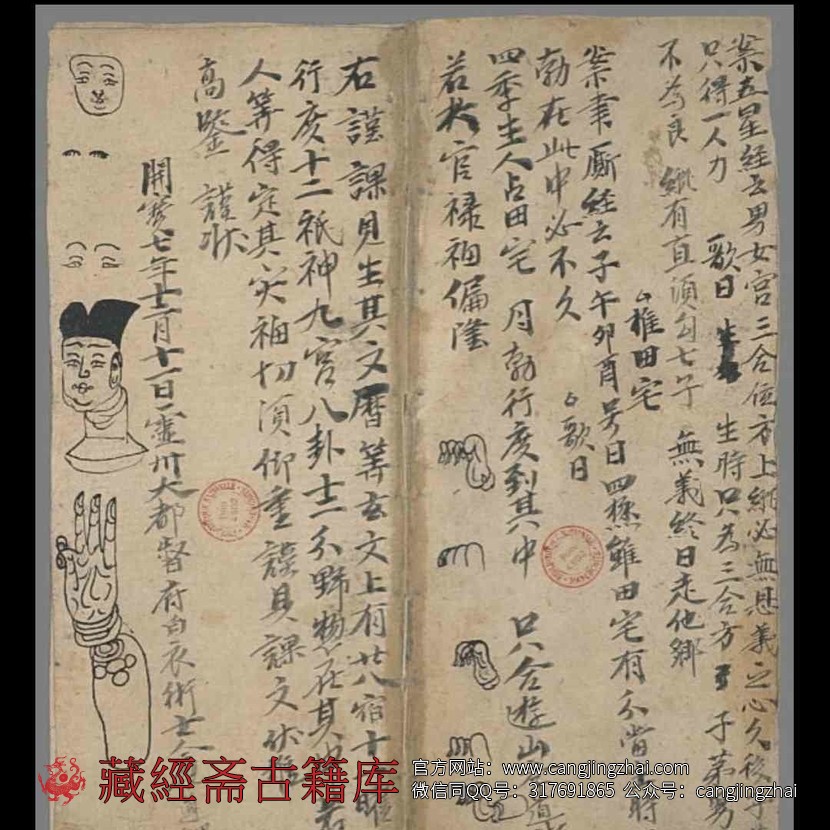 案五星經云男女宮三合位方上縱必無恩義之心久後
只得一人力　歌曰　生時只為三合方　子弟男
不為良　縱有直須勾七子　無義終日走他鄉
推田宅
案聿厮經云子午卯酉号曰四極雖田宅有分當時
勃在此中必不久　歌曰
四季生人占田宅　月勃行度到其中　只合遊山
若於官祿福偏隆
右謹課見生其文曆筭玄文上有廿八宿十一曜
行度十二祇神九宮八卦十二分野物在其
人筭得定其災福切須仰重謹具課文伏
高鑒　謹狀
開寶七年十二月十一日靈州大都督府白衣術士
藏經斋古籍库
官方网站：www.cangjingzhai.com
微信同QQ号：317691865 公众号：cangjingzhai